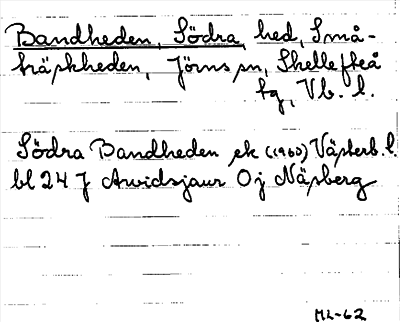 Bandheden, Södra, hed, Små-
träskheden, Jörns sn, Skellefteå
tg, Vb. l.
Södra Bandheden ek (1960) Västerb. l.
bl 24 J Arvidsjaur 0j Näsberg
ML-62